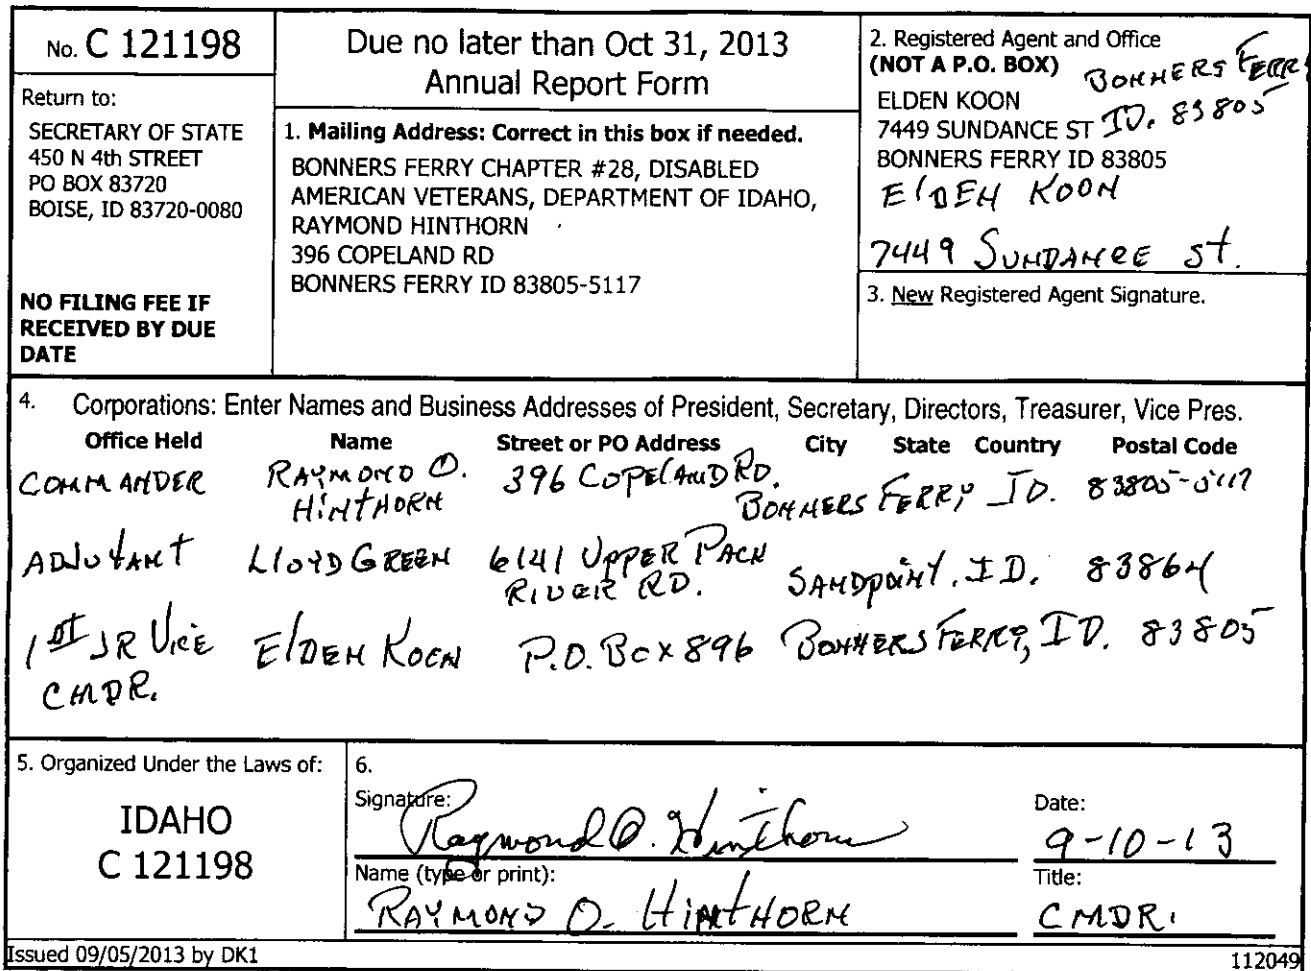 No. C 121198
Return to:
SECRETARY OF STATE
450 N 4th STREET
PO BOX 83720
BOISE, ID 83720-0080
NO FILING FEE IF
RECEIVED BY DUE
DATE
Due no later than Oct 31, 2013
Annual Report Form
1. Mailing Address: Correct in this box if needed.
BONNERS FERRY CHAPTER #28, DISABLED
AMERICAN VETERANS, DEPARTMENT OF IDAHO,
RAYMOND HINTHORN
396 COPELAND RD
BONNERS FERRY ID 83805-5117
2. Registered Agent and Office
(NOT A P.O. BOX)
BONNERS FERRY
ID. 83805
ELDEN KOON
7449 SUNDANCE ST
BONNERS FERRY ID 83805
ElDEN KOON
7449 SUNDANCE St.
3. New Registered Agent Signature.
4. Corporations: Enter Names and Business Addresses of President, Secretary, Directors, Treasurer, Vice Pres.
Office Held Name Street or PO Address City State Country Postal Code
COMMANDER RAYMOND O. HINTHORN 396 COPELAND RD. BONNERS FERRY ID. 83805-5117
ADJUTANT LLOYD GREEN 6141 UPPER PACK RIVER RD. SANDPOINT, ID. 83864
1ST JR VICE CMDR. ElDEN KOON P.O. BOX 896 BONNERS FERRY, ID. 83805
5. Organized Under the Laws of:
IDAHO
C 121198
6.
Signature: Raymond O. Hinthorn
Date: 9-10-13
Name (type or print): RAYMOND O. HINTHORN
Title: CMDR.
Issued 09/05/2013 by DK1
112049